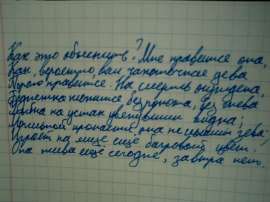 Как это объяснить? Мне нравится она,
Как, вероятно, вам чахоточная дева
Порою нравится. На смерть осуждена,
Бедняжка клонится без ропота, без гнева.
Улыбка на устах увянувших видна;
Могильной пропасти она не слышит зева;
Играет на лице ещё багровый цвет.
Она жива ещё сегодня, завтра нет.